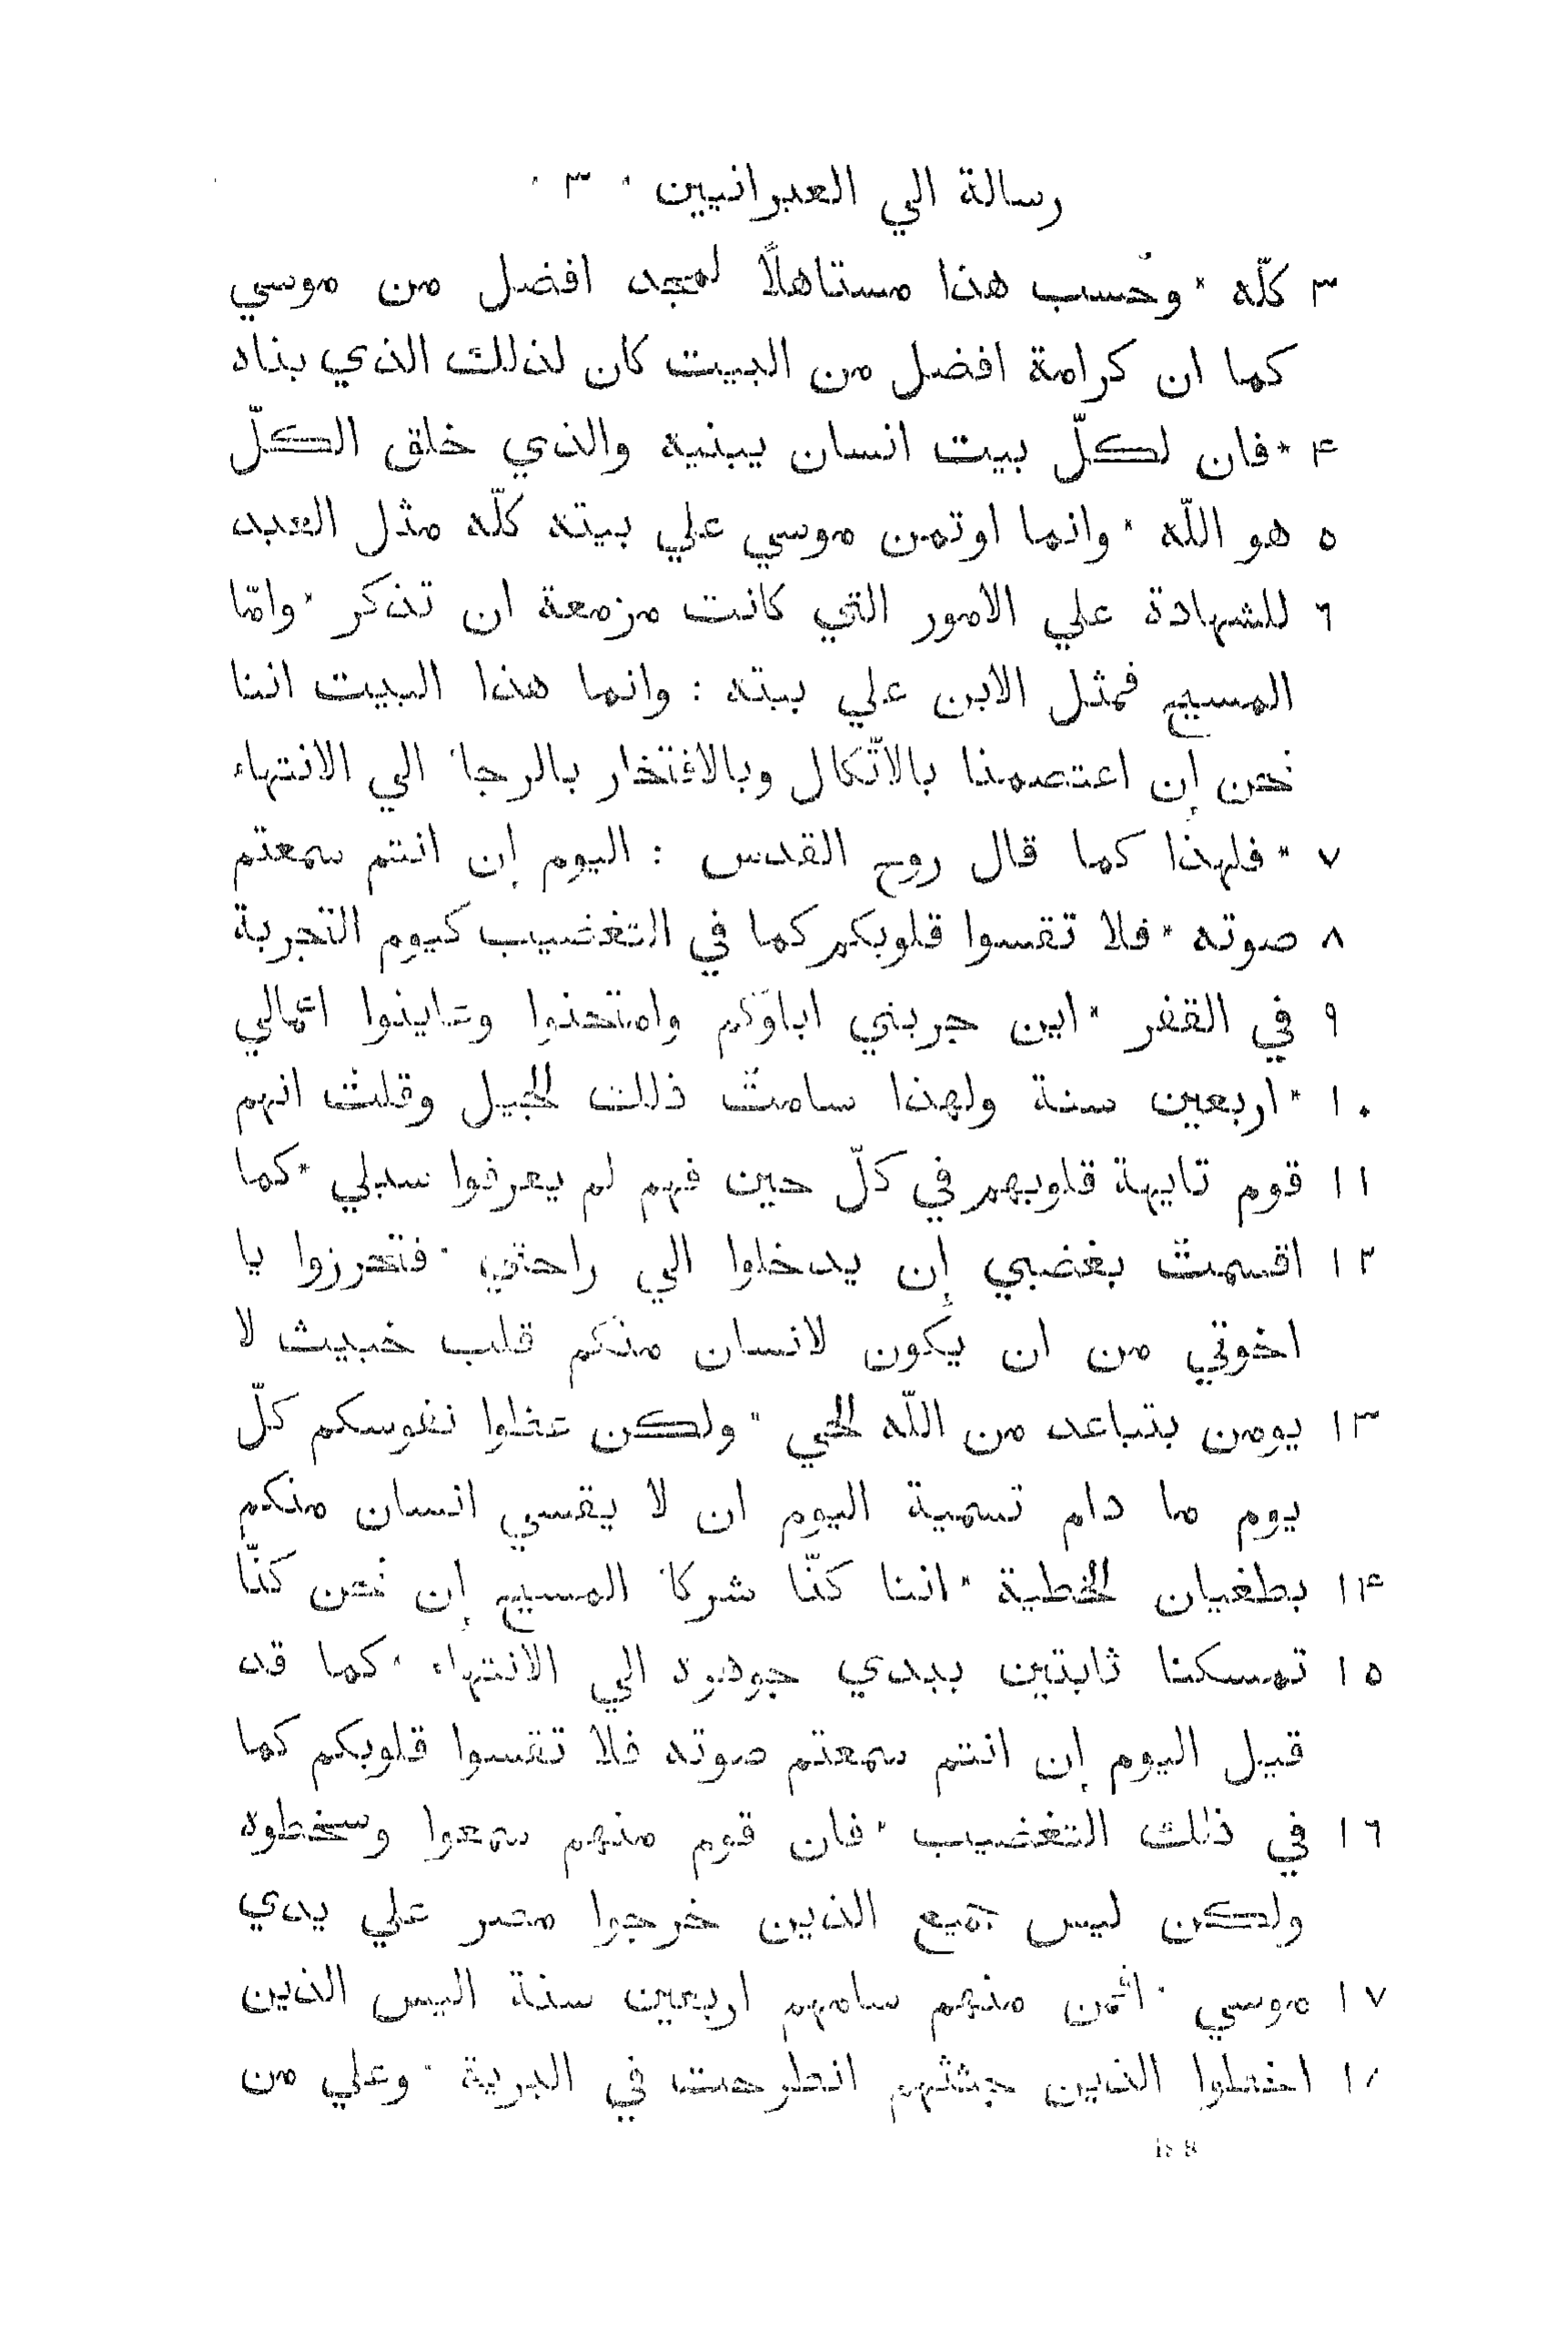 رسالة الي العبرانيين ٠ ٣ ٠
٣ كلّه * وحُسب هذا مستاهلًا لمجد افضل من موسي
كما ان كرامة افضل من البيت كان لذلك الذي بناه
۴ * فان لكلّ بيت انسان يبنيه والذي خلق الكلّ
٥ هو اللّه * وانما اوتمن موسي علي بيته كلّه مثل العبد
٦ للشهادة علي الامور التي كانت مزمعة ان تذكر * وامّا
المسيح فمثل الابن علي بيته : وانما هذا البيت اننا
نحن إن اعتصمنا بالاتّكال وبالافتخار بالرجاء الي الانتهاء
٧ * فلهذا كما قال روح القدس : اليوم إن انتم سمعتم
٨ صوته * فلا تقسوا قلوبكم كما في التغضيب كيوم التجربة
٩ في القفر * اين جربني اباؤكم وامتحنوا وعاينوا اعمالي
١٠ * اربعين سنة ولهذا سامتُ ذلك الجيل وقلتُ انهم
١١ قوم تايهة قلوبهم في كلّ حين فهم لم يعرفوا سبلي * كما
١٢ اقسمتُ بغضبي إن يدخلوا الي راحتي * فتحرزوا يا
اخوتي من ان يكون لانسان منكم قلب خبيث لا
١٣ يومن بتباعد من اللّه الحي * ولكن عظوا نفوسكم كلّ
يوم ما دام تسمية اليوم ان لا يقسي انسان منكم
١۴ بطغيان الخطية * اننا كنّا شركاء المسيح إن نحن كنّا
١٥ تمسكنا ثابتين ببدي جوهره الي الانتهاء * كما قد
قيل اليوم إن انتم سمعتم صوته فلا تقسوا قلوبكم كما
١٦ في ذلك التغضيب * فان قوم منهم سمعوا وسخطوه
ولكن ليس جميع الذين خرجوا مصر علي يدي
١٧ موسي * اثمن منهم سامهم اربعين سنة اليس الذين
١٨ اخطوا الذين جثثهم انطرحت في البرية * وعلي من